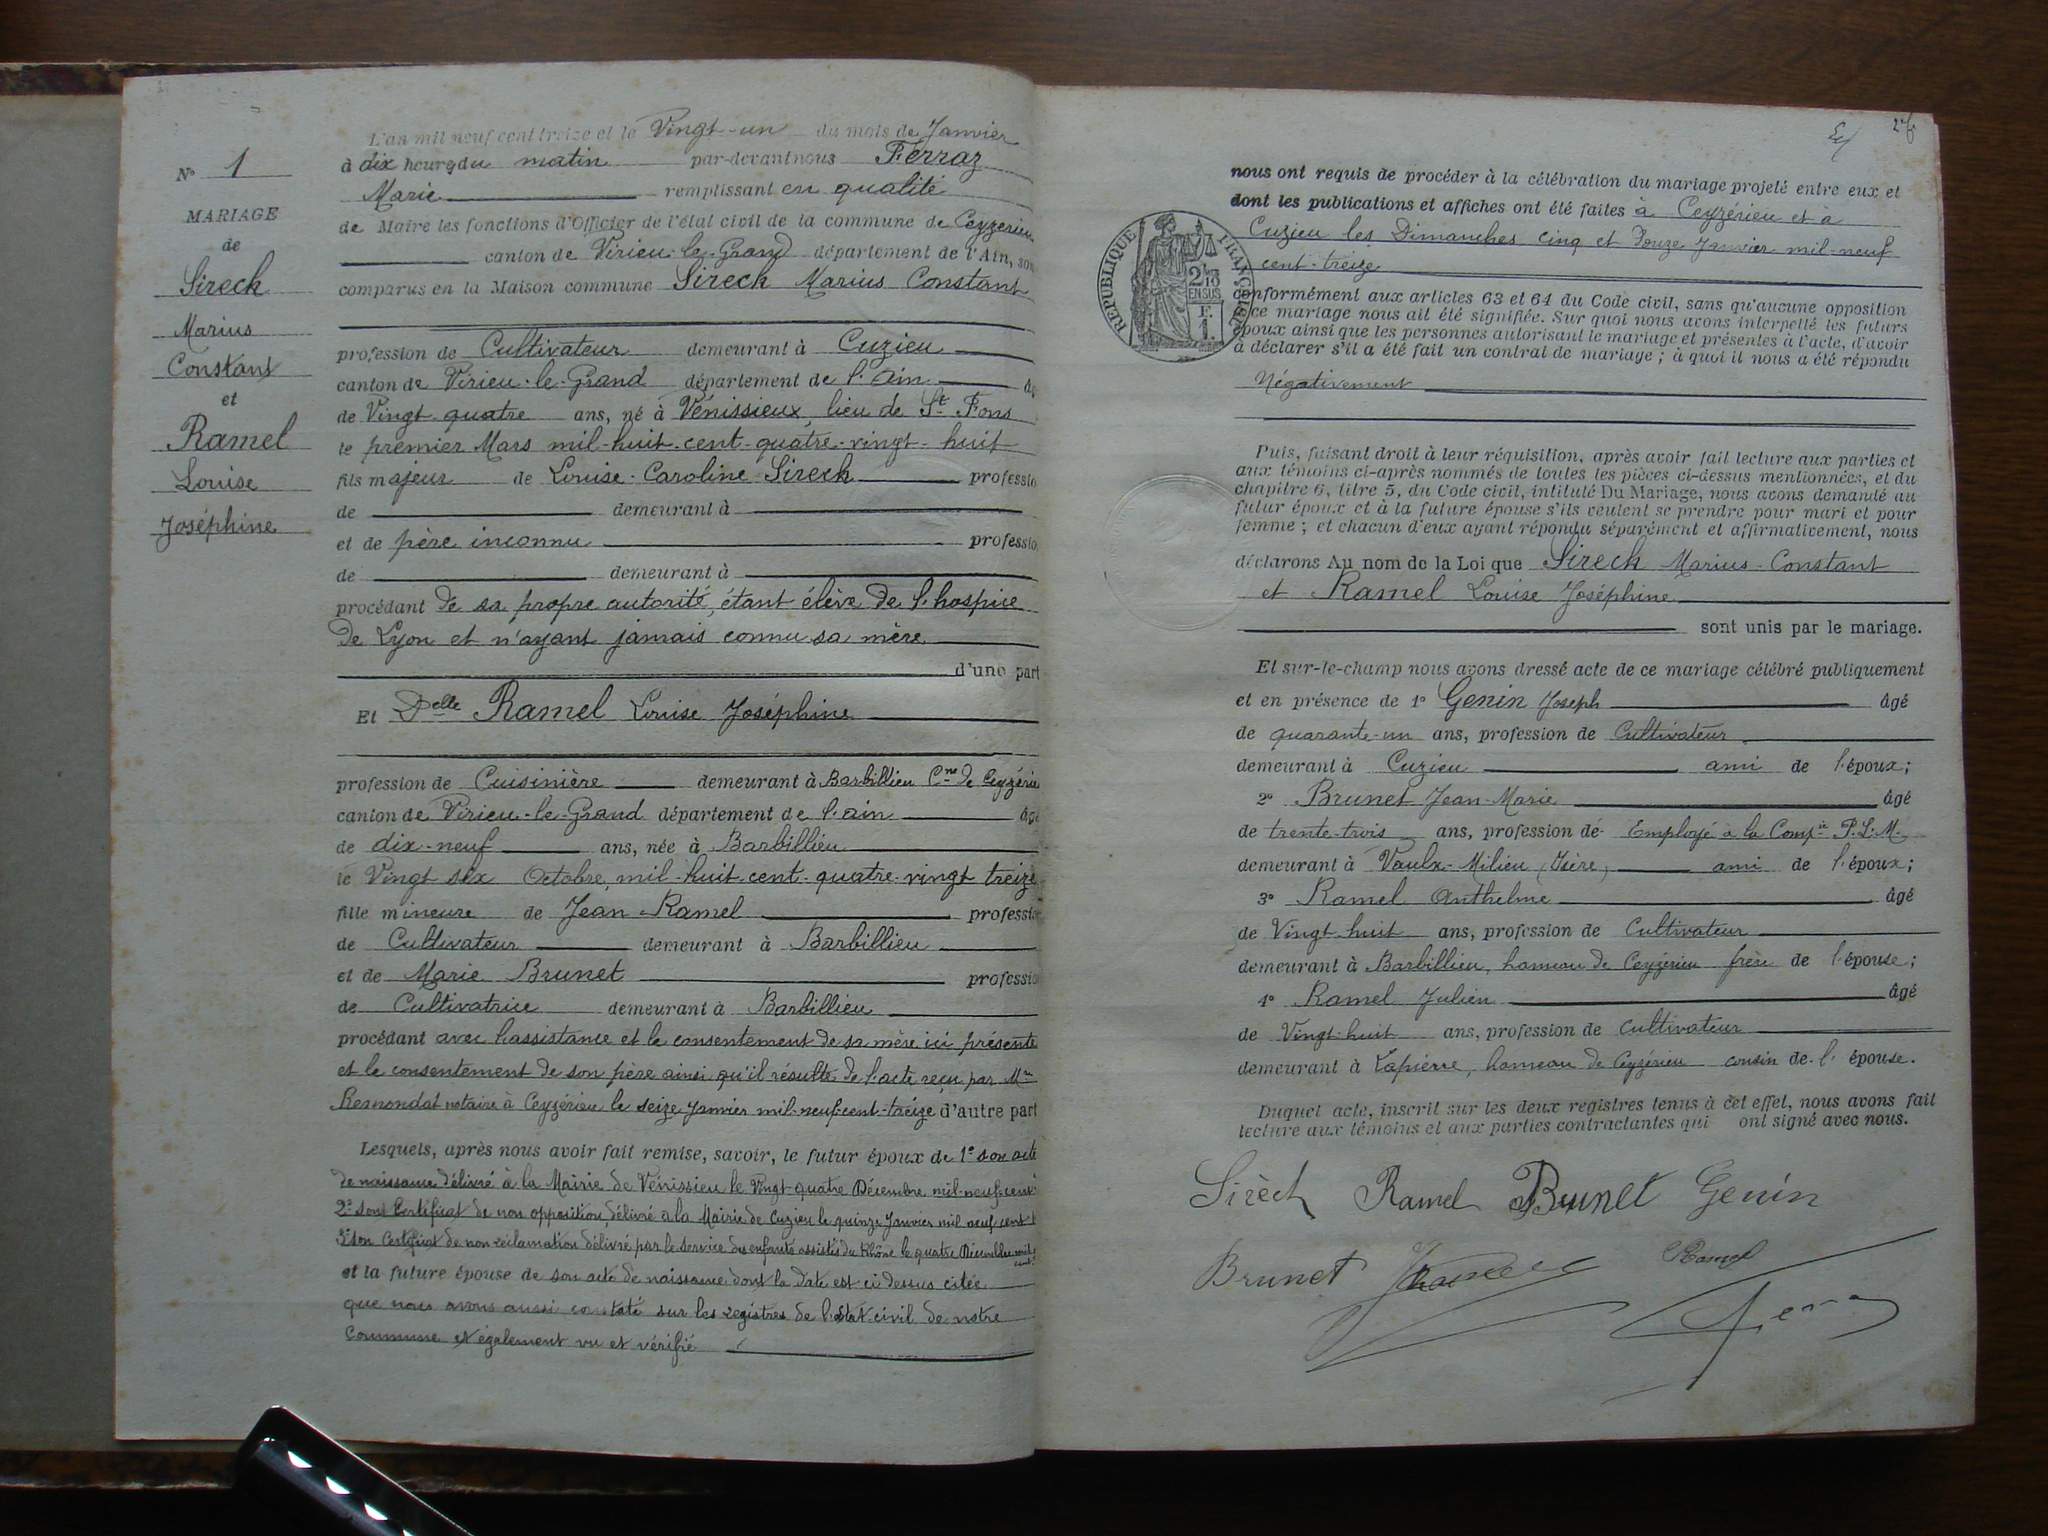 N° 1
MARIAGE
de
Sireck
Marius
Constant
et
Ramel
Louise
Joséphine
L'an mil neuf cent treize et le Vingt-un du mois de Janvier
à dix heures du matin par-devant nous Ferraz
Marie remplissant en qualité
de Maire les fonctions d'Officier de l'état civil de la commune de Ceyzérieu
canton de Virieu-le-Grand département de l'Ain, son
comparus en la Maison commune Sireck Marius Constant
profession de Cultivateur demeurant à Cuzieu
canton de Virieu-le-Grand département de l'ain âg
de Vingt quatre ans, né à Vénissieux, lieu de St Fons
le premier Mars mil-huit-cent-quatre-vingt-huit
fils majeur de Louise-Caroline Sireck professio
de demeurant à
et de père inconnu professio
de demeurant à
procédant de sa propre autorité, étant élève de l'hospice
de Lyon et n'ayant jamais connu sa mère
d'une part
Et Delle Ramel Louise Joséphine
profession de Cuisinière demeurant à Barbillieu Cne de Ceyzérie
canton de Virieu-le-Grand département de l'ain âgé
de dix-neuf ans, née à Barbillieu
le Vingt six Octobre, mil-huit cent-quatre-vingt treize
fille mineure de Jean Ramel professio
de Cultivateur demeurant à Barbillieu
et de Marie Brunet professio
de Cultivatrice demeurant à Barbillieu
procédant avec l'assistance et le consentement de sa mère ici présente
et le consentement de son père ainsi qu'il résulte de l'acte reçu par Me
notaire à Ceyzérieu le seize Janvier mil-neuf-cent-treize d'autre part
Lesquels, après nous avoir fait remise, savoir, le futur époux de 1° son acte
de naissance délivré à la Mairie de Vénissieu le Vingt-quatre Décembre mil-neuf-cent
2° son Certificat de non opposition délivré a la Mairie de Cuzieu le quinze Janvier mil neuf cent
3° son Certificat de non réclamation délivré par le service des enfants assistés du Rhône le quatre Décembre
et la future épouse de son acte de naissance dont la date est ci dessus citée
que nous avons aussi constaté sur les registres de l'état-civil de notre
Commune et également vu et vérifié
nous ont requis de procéder à la célébration du mariage projeté entre eux et
dont les publications et affiches ont été faites à Ceyzérieu et à
Cuzieu les Dimanches cinq et Douze Janvier mil-neuf
cent-treize
RÉPUBLIQUE FRANÇAISE
2/10
EN SUS
F.
1.
conformément aux articles 63 et 64 du Code civil, sans qu'aucune opposition
à ce mariage nous ait été signifiée. Sur quoi nous avons interpellé les futurs
époux ainsi que les personnes autorisant le mariage et présentes à l'acte, d'avoir
à déclarer s'il a été fait un contrat de mariage ; à quoi il nous a été répondu
Négativement
Puis, faisant droit à leur réquisition, après avoir fait lecture aux parties et
aux témoins ci-après nommés de toutes les pièces ci-dessus mentionnées, et du
chapitre 6, titre 5, du Code civil, intitulé Du Mariage, nous avons demandé au
futur époux et à la future épouse s'ils veulent se prendre pour mari et pour
femme ; et chacun d'eux ayant répondu séparément et affirmativement, nous
déclarons Au nom de la Loi que Sireck Marius-Constant
et Ramel Louise Joséphine
sont unis par le mariage.
Et sur-le-champ nous avons dressé acte de ce mariage célébré publiquement
et en présence de 1° Genin Joseph âgé
de quarante-un ans, profession de Cultivateur
demeurant à Cuzieu ami de l'époux;
2° Brunet Jean-Marie âgé
de trente-trois ans, profession de Employé à la Compie P.L.M.
demeurant à Vaulx-Milieu (Isère) ami de l'époux;
3° Ramel Anthelme âgé
de Vingt huit ans, profession de Cultivateur
demeurant à Barbillieu, hameau de Ceyzérieu frère de l'épouse;
4° Ramel Julien âgé
de Vingt-huit ans, profession de Cultivateur
demeurant à Lapierre, hameau de Ceyzérieu cousin de l'épouse.
Duquel acte, inscrit sur les deux registres tenus à cet effet, nous avons fait
lecture aux témoins et aux parties contractantes qui ont signé avec nous.
Sirèck Ramel Brunet Genin
Brunet Ramel